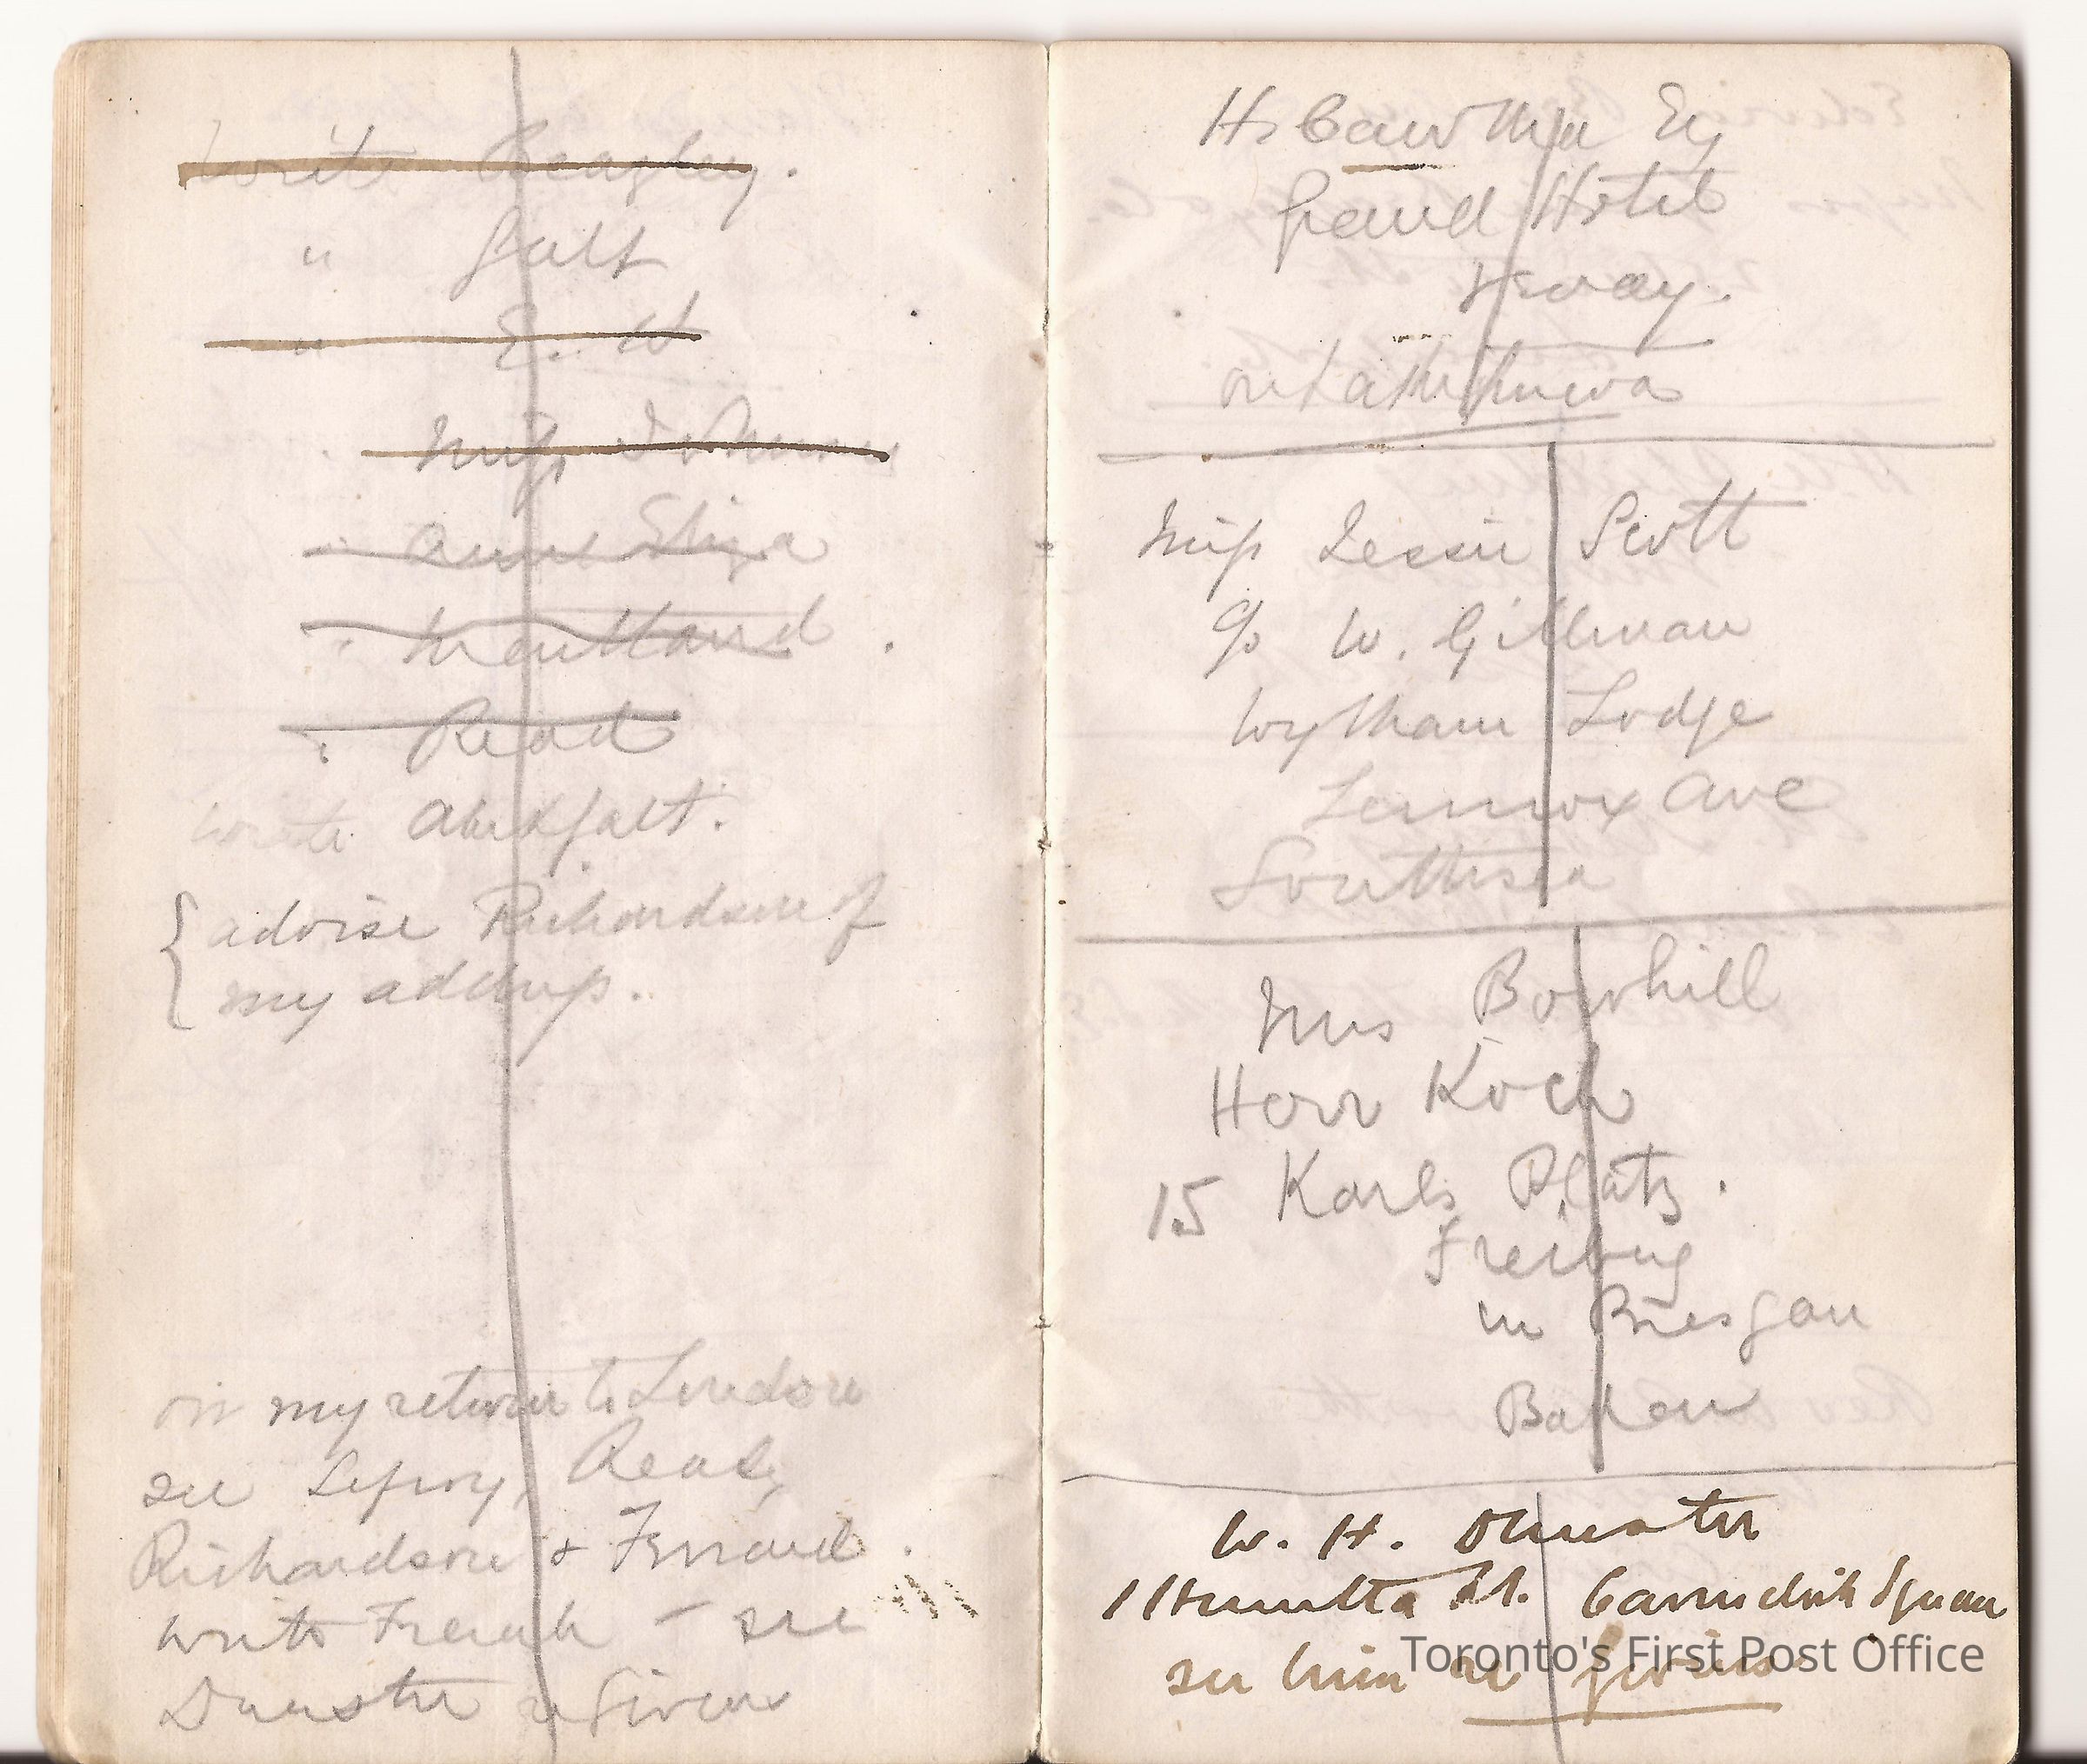 write Beagley.
" Galt
" E.
Miss Johnson
" Aunt Eliza
" Maitland
" Read
write Alex Galt.
advise Richardson of
my address.
on my return to London
see Lefroy, Read,
Richardson &
write French - see
Dunster re
H. Cawthra Esq
Grand Hotel
Miss Jessie Scott
c/o W. Gillman
Wytham Lodge
Lennox Ave
Southsea
Mrs Bowhill
Herr Koch
15 Karls Platz.
Freiburg
in Briesgau
Baden
W. H. Dunster
1 Henrietta St. Cavendish Square
see him re
Toronto's First Post Office